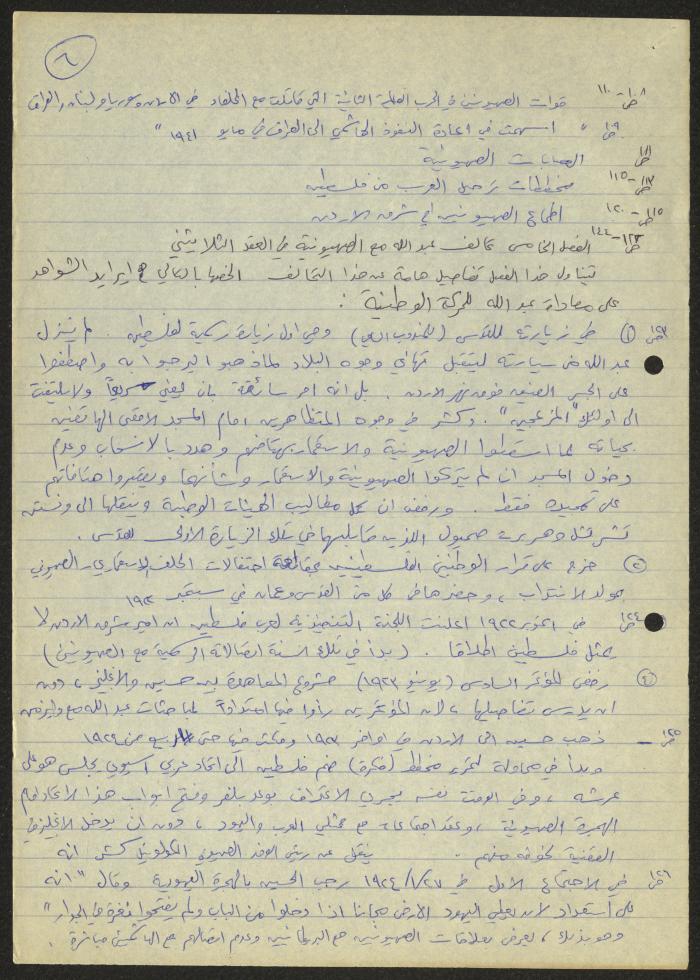 ٦
ص ١١٠ قوات الصهيونيين في الحرب العالمية الثانية التي قاتلت مع الحلفاء في الاردن وسوريا ولبنان والعراق
ص " اسهمت في اعادة النفوذ الهاشمي الى العراق في مايو ١٩٤١ "
ص ١١١ العصابات الصهيونية
ص ١١٣-١١٥ مخططات ترحيل العرب من فلسطين
ص ١١٥-١٢٠ اطماع الصهيونيين في شرق الاردن
ص ١٢٣-١٤٤ الفصل الخامس تحالف عبد الله مع الصهيونية في العقد الثلاثيني
يتناول هذا الفصل تفاصيل هامة عن هذا التحالف الخصها بالتالي مع ايراد الشواهد
على معاداة عبد الله للحركة الوطنية :
① في زيارته للقدس وهي اول زيارة رسمية لفلسطين لم ينزل
عبد الله من سيارته ليتقبل تهاني وجوه البلاد الذين ذهبوا ليرحبوا به واصطفوا
على الجسر الضيق فوق نهر الاردن . بل انه امر سائقه بان يمضي سريعا ولا يلتفت
الى اولئك "المزعجين" . وكشر في وجوه المتظاهرين امام المسجد الاقصى الهاتفين
بحياته لما استنكروا الصهيونية والاستعمار وهدد بالانسحاب وعدم
دخول المسجد ان لم يتركوا الصهيونية والاستعمار وشأنهما ويقصروا هتافاتهم
على تمجيده فقط . ورفض ان مطاليب الهيئات الوطنية وينقلها الى ونستون
تشرتشل وهربرت صموئيل اللذين قابلهما في تلك الزيارة الاولى للقدس .
② خرج على قرار الوطنيين الفلسطينيين بمقاطعة احتفالات الحلف الاستعماري - الصهيوني
بمولد الانتداب ، وحضرها في كل من القدس وعمان في سبتمبر
ص ١٢٤ في اكتوبر ١٩٢٢ اعلنت اللجنة التنفيذية لعرب فلسطين ان امير شرق الاردن لا
يمثل فلسطين اطلاقا . (بدأ في تلك السنة اتصالاته الرسمية مع الصهيونيين)
رفض المؤتمر السادس (يونيو ١٩٢٣) مشروع المعاهدة بين حسين والانجليز ، دون
ان يدرس تفاصيلها ، لان المؤتمرين رأوا فيها امتدادا لمباحثات عبد الله مع وايزمن
ص ١٢٥ - ذهب حسين الى الاردن في اواخر ومكث فيها حتى
وبدأ في محاولة لتمرير مخطط (فكرة) ضم فلسطين الى اتحاد عربي اسيوي يجلس هو على
عرشه ، وفي الوقت نفسه يجري الاعتراف بوعد بلفور وفتح ابواب هذا الاتحاد امام
الهجرة الصهيونية ، وعقد اجتماعات مع ممثلي العرب واليهود ، دون ان يدخل الانجليز في
القضية لخوفه منهم . ينقل عن رئيس الوفد الصهيوني الكولونيل كش انه
ص ١٢٦ في الاجتماع الاول في ٢٧/١/١٩٢٤ رحب الحسين بالهجرة اليهودية وقال "انه
على استعداد لان يعطي اليهود الارض مجانا اذا دخلوا من الباب ولم يفتحوا ثغرة في الجدار"
وهو بذلك ، يعرض بعلاقات الصهيونيين مع البريطانيين وعدم اتصالهم مع الهاشميين مباشرة .